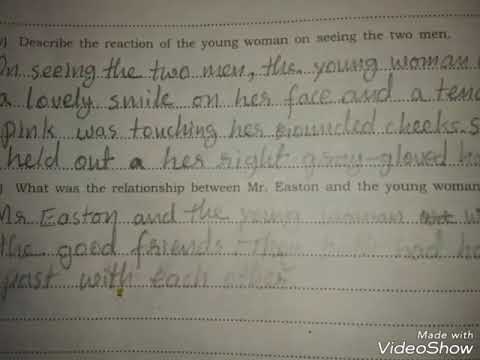 Describe the reaction of the young woman on seeing the two men.
On seeing the two men, the young woman
a lovely smile on her face and a
pink was touching her rounded cheeks. S
held out a her right gray-gloved
What was the relationship between Mr. Easton and the young woman
Mr Easton and the young woman
the good friends. They had
past with each other
Made with
VideoShow